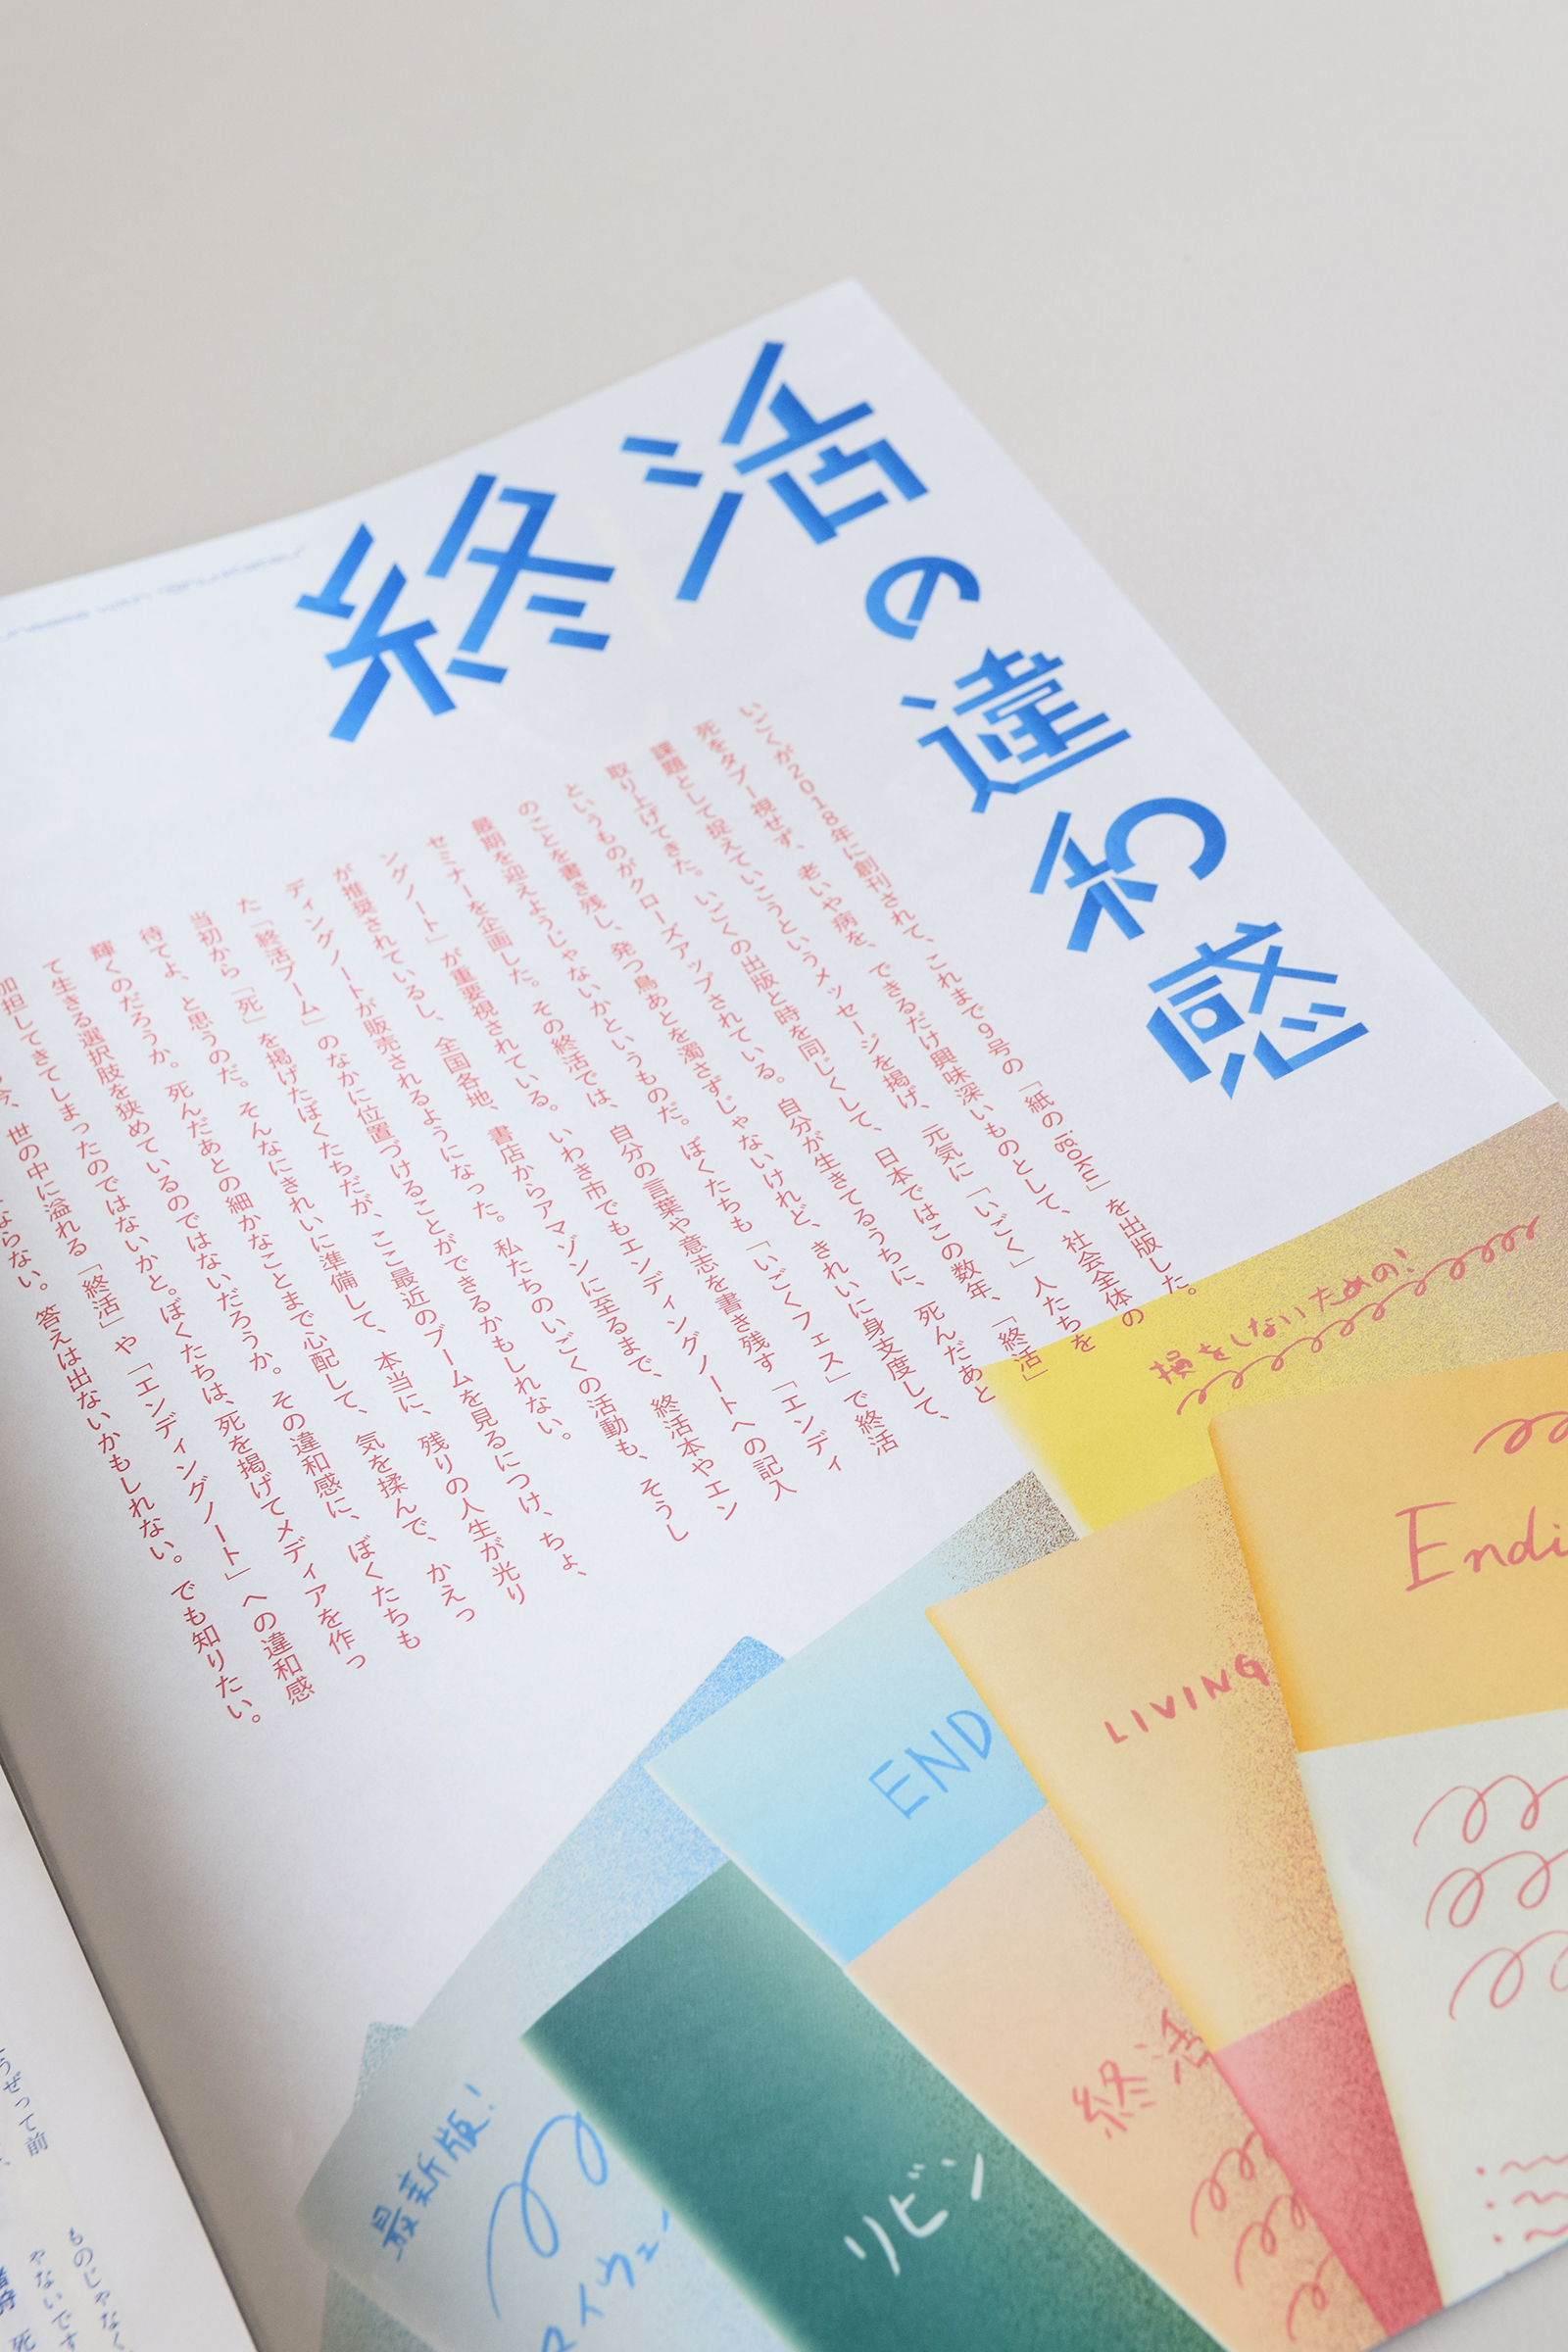 終活の違和感
いごくが2018年に創刊されて、これまで9号の「紙のigoku」を出版した。
死をタブー視せず、老いや病を、できるだけ興味深いものとして、社会全体の
課題として捉えていこうというメッセージを掲げ、元気に「いごく」人たちを
取り上げてきた。いごくの出版と時を同じくして、日本ではこの数年、「終活」
というものがクローズアップされている。自分が生きてるうちに、死んだあと
のことを書き残し、発つ鳥あとを濁さずじゃないけれど、きれいに身支度して、
最期を迎えようじゃないかというものだ。ぼくたちも「いごくフェス」で終活
セミナーを企画した。その終活では、自分の言葉や意志を書き残す「エンディ
ングノート」が重要視されている。いわき市でもエンディングノートへの記入
が推奨されているし、全国各地、書店からアマゾンに至るまで、終活本やエン
ディングノートが販売されるようになった。私たちのいごくの活動も、そうし
た「終活ブーム」のなかに位置づけることができるかもしれない。
当初から「死」を掲げたぼくたちだが、ここ最近のブームを見るにつけ、ちょ、
待てよ、と思うのだ。そんなにきれいに準備して、本当に、残りの人生が光り
輝くのだろうか。死んだあとの細かなことまで心配して、気を揉んで、かえっ
て生きる選択肢を狭めているのではないだろうか。その違和感に、ぼくたちも
加担してきてしまったのではないかと。ぼくたちは、死を掲げてメディアを作っ
今、世の中に溢れる「終活」や「エンディングノート」への違和感
ならない。答えは出ないかもしれない。でも知りたい。
損をしないための!
Endi
LIVING
END
終活
リビン
最新版!
マイウェ
うぜって前
ものじゃなく
やないです
死